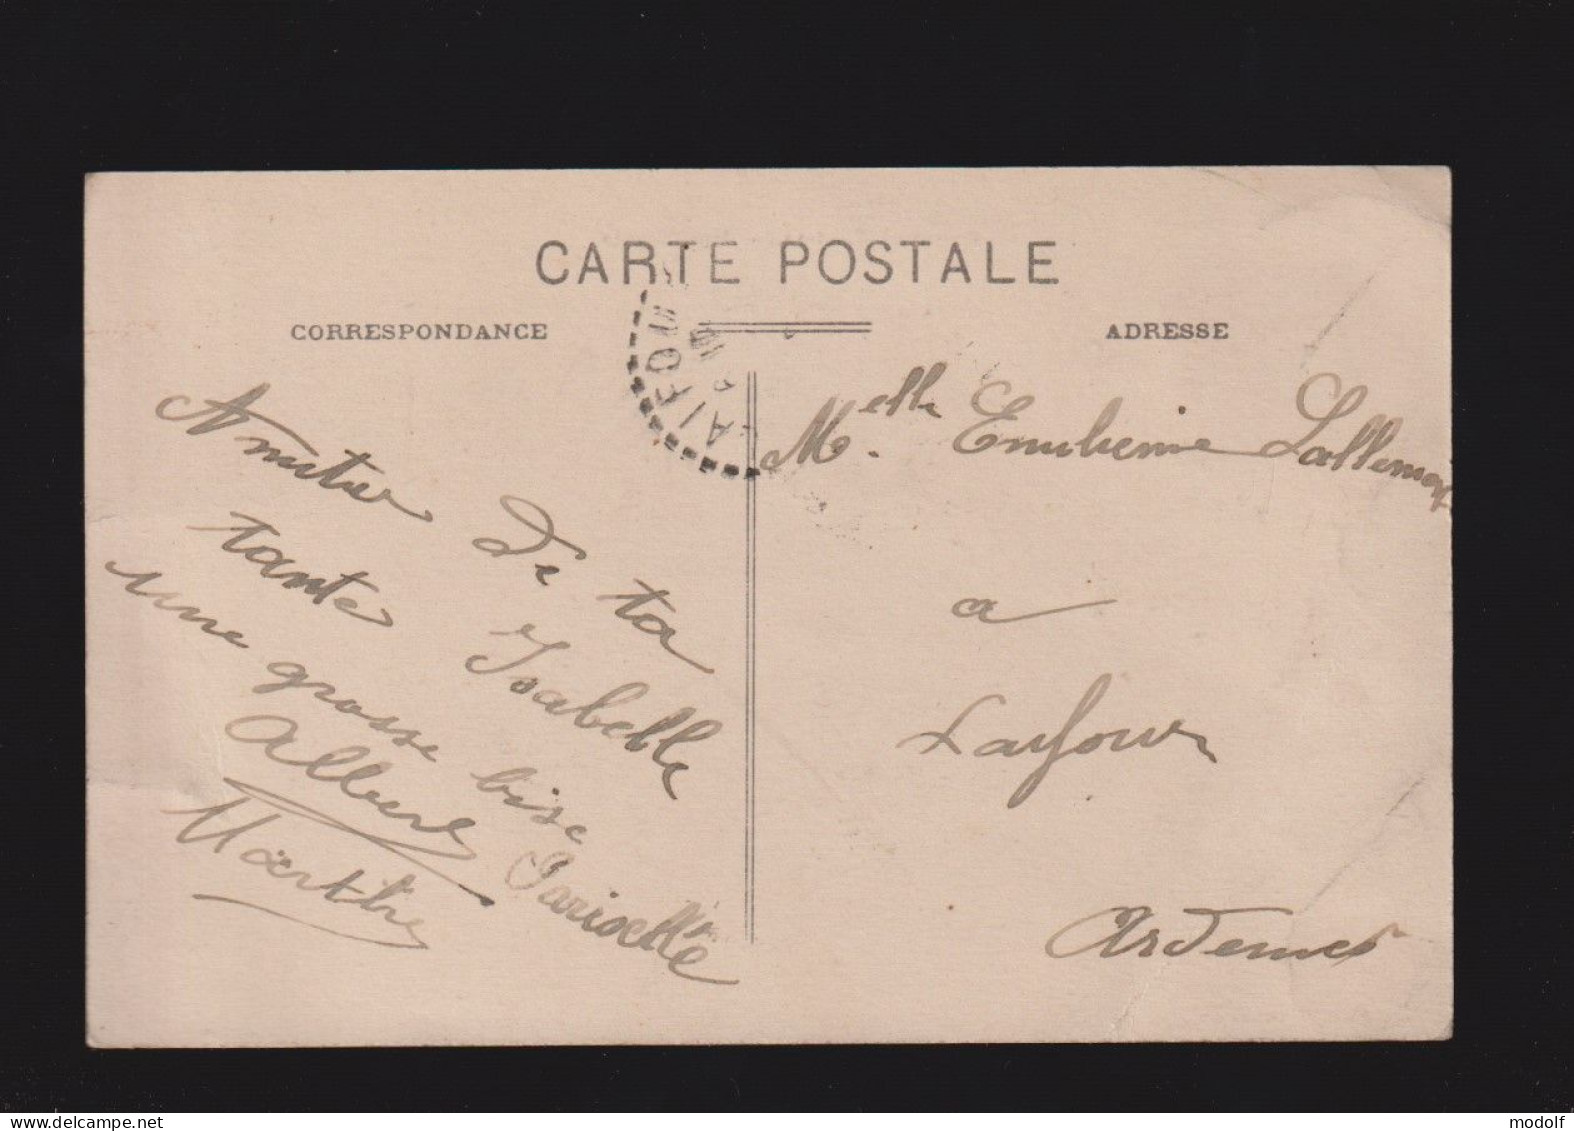 CARTE POSTALE
CORRESPONDANCE
ADRESSE
LAIFOUR
Amitié De ta
tante Isabelle
une grosse bise
Albert Marisette
Marthe
Melle Emilienne Lallemant
a
Laifour
Ardennes
modolf